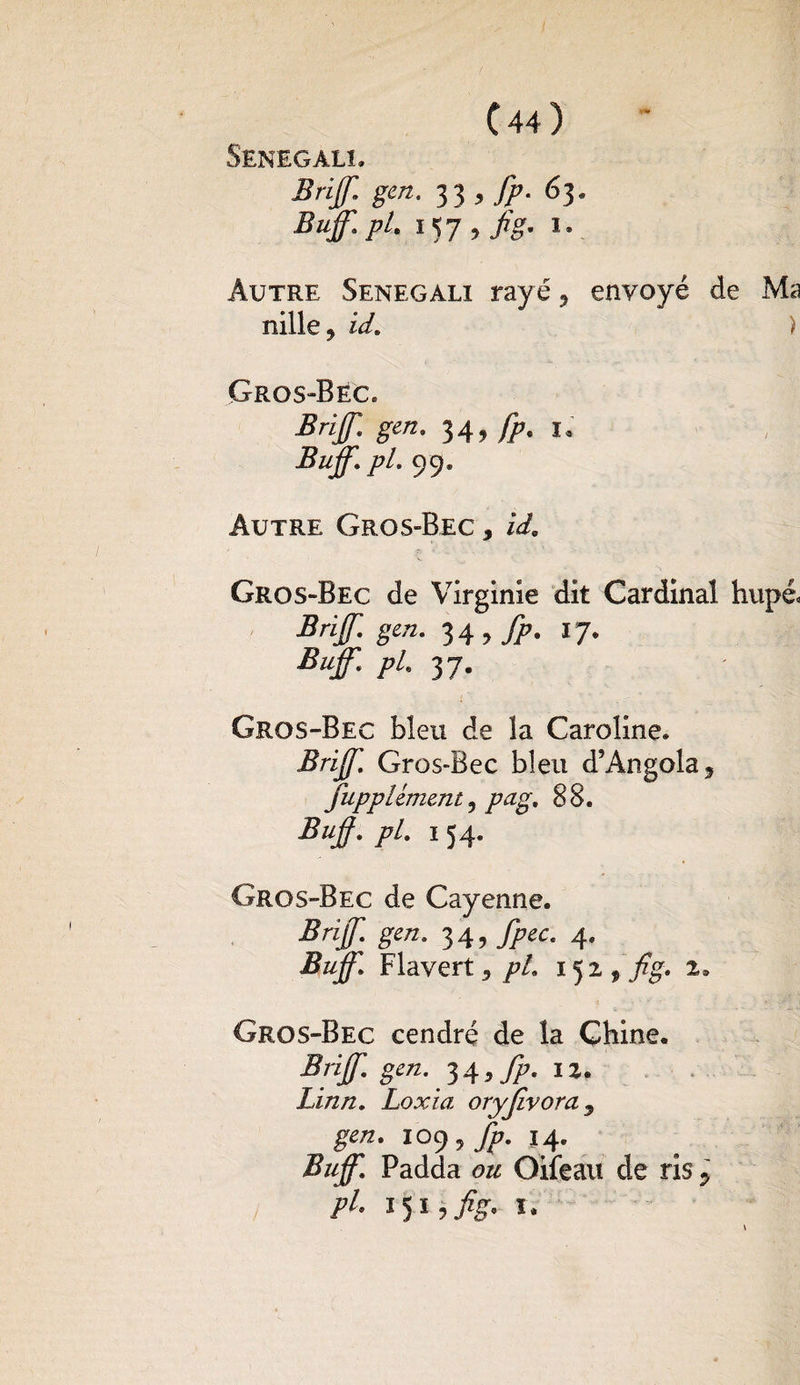 (44)
SENEGALI.
Briſſ. gen. 33, ſp. 63.
Buff. pl. 157, fig. 1.
AUTRE SENEGALI rayé, envoyé de Ma
nille, id.
GROS-BEC.
Briſſ. gen. 34, ſp. 1.
Buff. pl. 99.
AUTRE GROS-BEC, id.
GROS-BEC de Virginie dit Cardinal hupé.
Briſſ. gen. 34, ſp. 17.
Buff. pl. 37.
GROS-BEC bleu de la Caroline.
Briſſ. Gros-Bec bleu d'Angola,
ſupplément, pag. 88.
Buff. pl. 154.
GROS-BEC de Cayenne.
Briſſ. gen. 34, ſpec. 4.
Buff. Flavert, pl. 152, fig. 2.
GROS-BEC cendré de la Chine.
Briſſ. gen. 34, ſp. 12.
Linn. Loxia oryſivora,
gen. 109, ſp. 14.
Buff. Padda ou Oiſeau de ris,
pl. 151, fig. 1.